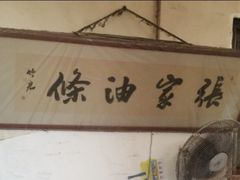 張家油條